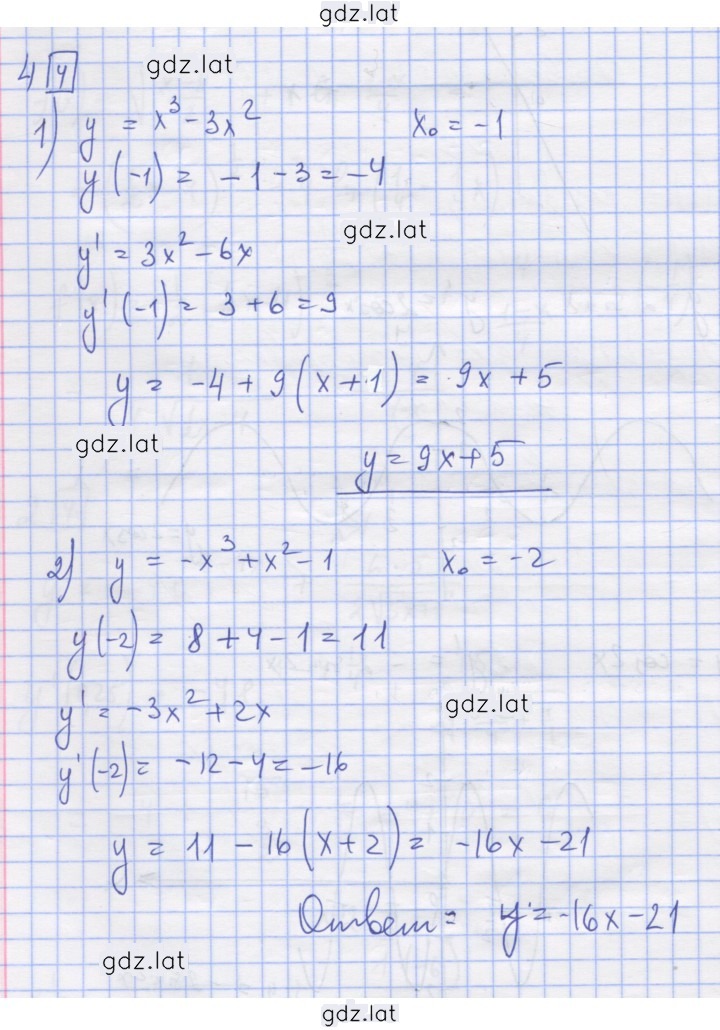 gdz.lat
4 4 gdz.lat
1) y = x³ - 3x² x₀ = -1
y(-1) = -1 - 3 = -4
gdz.lat
y' = 3x² - 6x
y'(-1) = 3 + 6 = 9
y = -4 + 9(x + 1) = 9x + 5
gdz.lat
y = 9x + 5
2) y = -x³ + x² - 1 x₀ = -2
y(-2) = 8 + 4 - 1 = 11
y' = -3x² + 2x gdz.lat
y'(-2) = -12 - 4 = -16
y = 11 - 16(x + 2) = -16x - 21
Ответ: y = -16x - 21
gdz.lat
gdz.lat